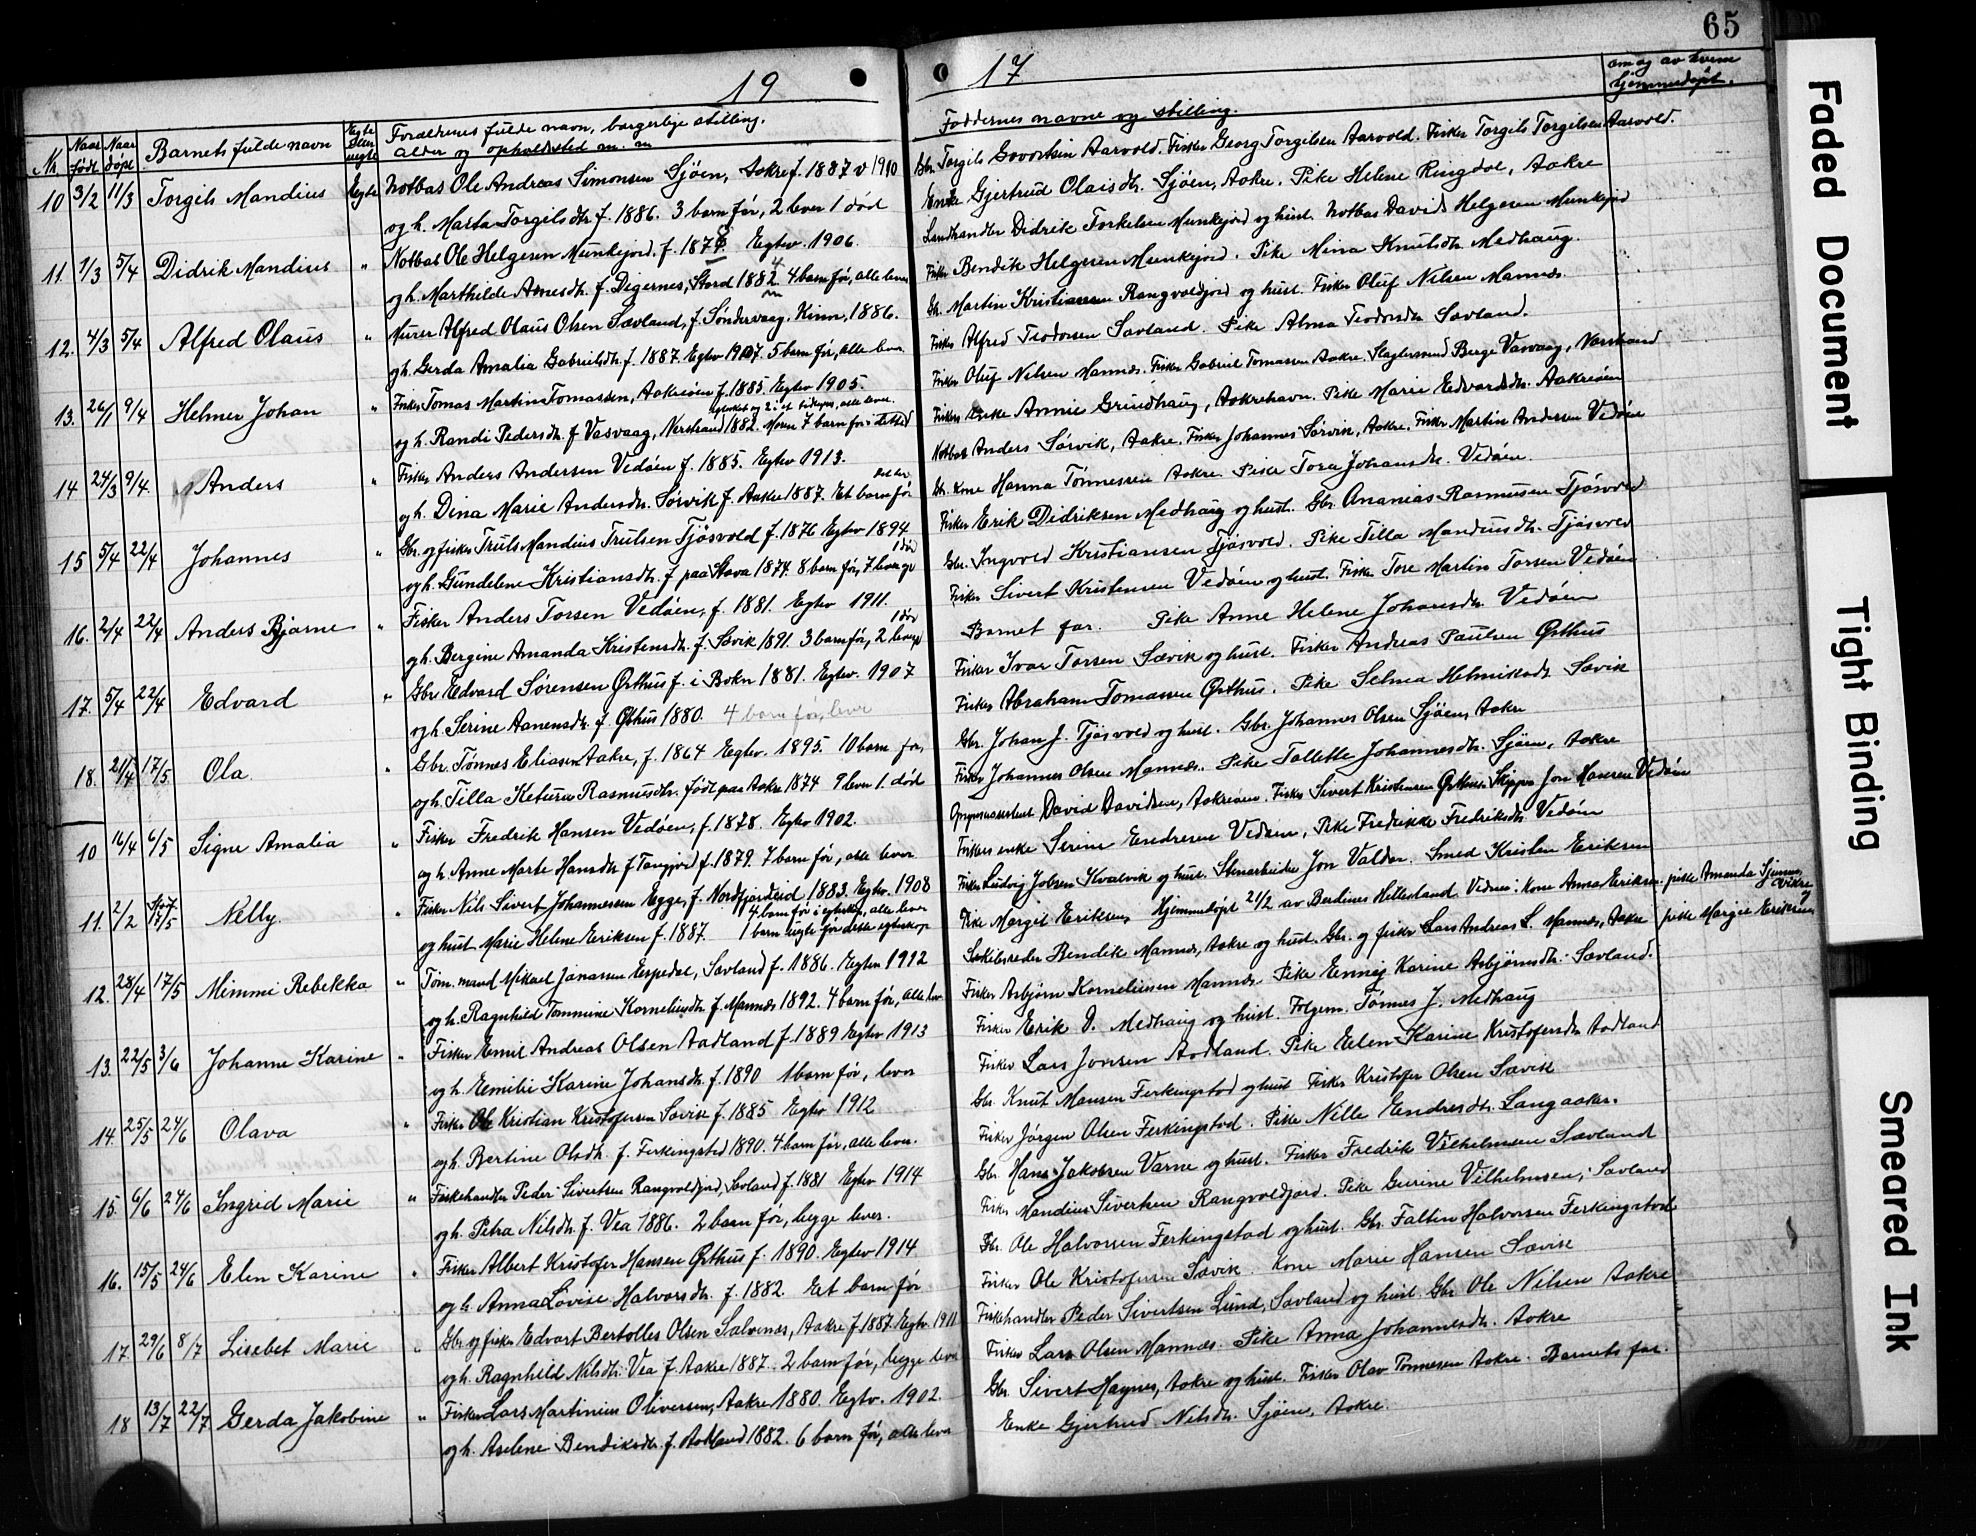 65
19
17
Nr. Naar født Naar døpt Barnets fulde navn Egte eller uegte Forældrenes fulde navn, borgerlige stilling, alder og opholdsted m. m
Faddernes navne og stilling.
om og av hvem hjemmedøpt.
10 3/2 11/3 Torgils Mandius Egte Notbas Ole Andreas Simonsen Sjøen, Aakre f. 1887 v 1910
og h. Marta Torgilsdtr f. 1886. 3 barn før, 2 lever 1 død
Gbr. Torgils Aarvold. Fisker Georg Torgilsen Aarvold. Fisker Torgils Torgilsen Aarvold.
Enke Gjertrud Olaisdtr. Sjøen, Aakre. Pike Helene Ringdal, Aakre
11. 1/3 5/4 Didrik Mandius " Notbas Ole Helgesen Munkejord. f. 1878. Egtev. 1906.
og h. Marthilde Arnesdtr. f. Digernes, Stord 1882. 4 barn før, alle lever
Landhandler Didrik Torkelsen Munkejord og hust. Notbas David Helgesen Munkejord
Fisker Bendik Helgesen Munkejord. Pike Mina Knutsdtr Medhaug.
12. 4/3 5/4 Alfred Olaus " Murer Alfred Olaus Olsen Sævland, f. Søndervaag. Kinn, 1886.
og h. Gerda Amalia Gabrielsdtr. f. 1887. Egtev 1907. 5 barn før, alle lever.
Gb. Martin Kristiansen Rangvoldjord og hust. Fisker Oluf Nilsen Mannes.
Fisker Alfred Teodorsen Sævland. Pike Alma Teodorsdtr Sævland.
13. 26/1 9/4 Helmer Johan " Fisker Tomas Martin Tomassen, Aakreøen f. 1885. Egtev 1905.
og h. Randi Pedersdtr. f Vasvaag, Nerstrand 1882. Moren 7 barn før
Fisker Oluf Nilsen Mannes. Fisker Gabriel Tomassen Aakre. Slagtersvend Børge Vasvaag, Nærstrand
Fiskers enke Annie Grindhaug, Aakrehavn. Pike Marie Edvardsdtr. Aakreøen
14 24/3 9/4. Anders " Fisker Anders Andersen Vedøen f. 1885. Egtev 1913.
og h. Dina Marie Andersdtr. Sørvik f. Aakre 1887. Et barn før
Notbas Anders Sørvik, Aakre. Fisker Johannes Sørvik, Aakre. Fisker Martin Andersen Vedøen
Gb. kone Hanna Tønnessen Aakre. Pike Tora Johansdtr. Vedøen.
15 5/4 22/4 Johannes " Gbr. og fisker Truls Mandius Trulsen Tjøsvold f. 1876 Egtev 1894
og h. Gundelene Kristiansdtr. f paa Stava 1874. 8 barn før, 7 lever og 1 død
Fisker Erik Didriksen Medhaug og hust. Gbr. Ananias Rasmussen Tjøsvold
Gbr. Ingvold Kristiansen Tjøsvold. Pike Tilla Mandiusdtr. Tjøsvold
16. 2/4 22/4 Anders Bjarne " Fisker Anders Torsen Vedøen, f. 1881. Egtev 1911.
og h. Bergine Amanda Kristensdtr. f. Sævik 1891. 3 barn før, 2 lever og 1 død
Fisker Sivert Kristensen Vedøen og hust. Fisker Tore Martin Torsen Vedøen
Barnets far. Pike Anne Helene Johansdtr. Vedøen
17. 5/4 22/4 Edvard " Gbr Edvard Sørensen Østhus f. i Bokn 1881. Egtev. 1907
og h. Serine Aanensdtr. f. Østhus 1880. 4 barn før, lever
Fisker Ivar Torsen Sævik og hust. Fisker Andreas Paulsen Østhus
Fisker Abraham Tomassen Østhus. Pike Selma Helmiksdtr Sævik
18. 21/4 17/5 Ola. " Gbr. Tønnes Eliasen Aakre, f. 1864 Egtev. 1895. 10 barn før,
og h. Tilla Keturie Rasmusdtr. født paa Aakre 1874 9 lever 1. død
Gbr. Johan J. Tjøsvold og hust. Gbr. Johannes Olsen Sjøen, Aakre
Fisker Johannes Olsen Mannes. Pike Tallette Johannesdtr. Sjøen, Aakre
10 16/4 6/5 Signe Amalia " Fisker Fredrik Hansen Vedøen, f. 1878. Egtev 1902.
og h. Anne Marte Hansdtr f Tangjerd f. 1879. 7 barn før, alle lever
David Davidsen, Aakreøen. Fisker Sivert Kristensen Østhus. Skipper Jon Hansen Vedøen
Fiskers enke Serine Endresen Vedøen, Pike Fredrikke Fredriksdtr Vedøen
11. 2/2 17/5 Nelly. " Fisker Nils Sivert Johannessen Egge, f. Nordfjordeid 1883. Egtev. 1908
og hust Marie Helene Eriksen f. 1887. 4 barn før i egteskap, alle lever 1 barn uegte før dette egteskap
Fisker Ludvig Jobsen Kvalvik og hust. Stenarbeider Jon Valder. Smed Kristen Eriksen
Pike Margit Eriksen, Hjemmedøpt 2/2 av Berdines Hetterland. Vidner: Kone Anna Eriksen. pike Amanda Vikre og pike Margit Eriksen
12. 28/4 17/5 Mimmi Rebekka " Tøm. mand Mikael Janassen Espedal, Sævland f. 1886. Egtev 1912
og h. Ragnhild Tommine Korneliusdtr f. Mannes 1892. 4 barn før, alle lever
Skibsreder Bendik Mannes, Aakre og hust. Gbr. og fisker Lars Andreas L. Mannes, Aakre
Fisker Asbjørn Korneliusen Mannes. Pike Karine Asbjørnsdtr. Sævland.
13. 22/5 3/6 Johanne Karine " Fisker Emil Andreas Olsen Aadland f. 1889 Egtev 1913
og h. Emilie Karine Johansdtr. f. 1890 1 barn før, lever
Fisker Erik D. Medhaug og hust. Folgem. Tønnes J. Medhaug
Fisker Lars Jonsen Aadland. Pike Elen Karine Kristofersdtr Aadland
14. 25/5 24/6 Olava " Fisker Ole Kristian Kristofersen Sævik f. 1885 Egtev 1912
og h. Bertine Olsdtr. f. Ferkingstad 1890. 4 barn før, alle lever.
Gbr. Knut Monsen Ferkingstad og hust Fisker Kristofer Olsen Sævik
Fisker Jørgen Olsen Ferkingstad. Pike Nille Endresdtr. Langaaker.
15. 6/6 24/6 Ingrid Marie " Fiskehandler Peder Sivertsen Rangvoldjord, Sævland f. 1881 Egtev 1914
og h. Petra Nilsdtr. f. Vea 1886. 2 barn før, begge lever.
Gbr. Hans Jakobsen Varne og hust. Fisker Fredrik Vilhelmsen Sævland
Fisker Mandius Sivertsen Rangvoldjord. Pike Gurine Vilhelmsen, Sævland
16. 15/5 24/6 Elen Karine " Fisker Albert Kristofer Hansen Østhus f. 1890. Egtev 1914
og h. Anna Lovise Halvorsdtr. f. 1882. Et barn før
Gbr. Ole Halvorsen Ferkingstad og hust. Gbr. Faltin Halvorsen Ferkingstad
Fisker Ole Kristofersen Sævik. Kone Marie Hansen Sævik
17. 29/6 8/7 Lisebet Marie " Gbr. og fisker Edvart Bertolles Olsen Salvenes, Aakre f 1887. Egtev. 1911
og h. Ragnhild Nilsdtr. Vea f Aakre 1887. 2 barn før, begge lever
Fiskehandler Peder Sivertsen Lund, Sævland og hust. Gbr. Ole Nilsen Aakre
Fisker Lars Olsen Mannes. Pike Anna Johannesdtr. Aakre
18 13/7 22/7 Gerda Jakobine " Fisker Lars Martinius Oliversen, Aakre 1880. Egtev. 1902.
og h. Aselene Bendiksdtr. f. Aadland 1882. 6 barn før, alle lever
Gbr. Sivert Magnes, Aakre og hust. Fisker Olav Tønnesen Aakre. Barnets far.
Enke Gjertrud Nilsdtr. Sjøen, Aakre.
Faded Document
Tight Binding
Smeared Ink